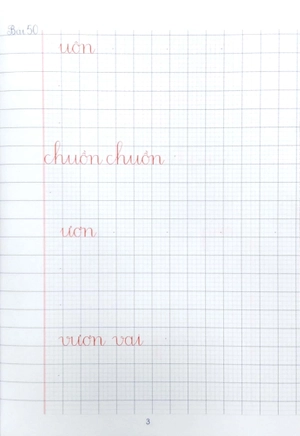 Bài 50
uôn
chuồn chuồn
ươn
vươn vai
3